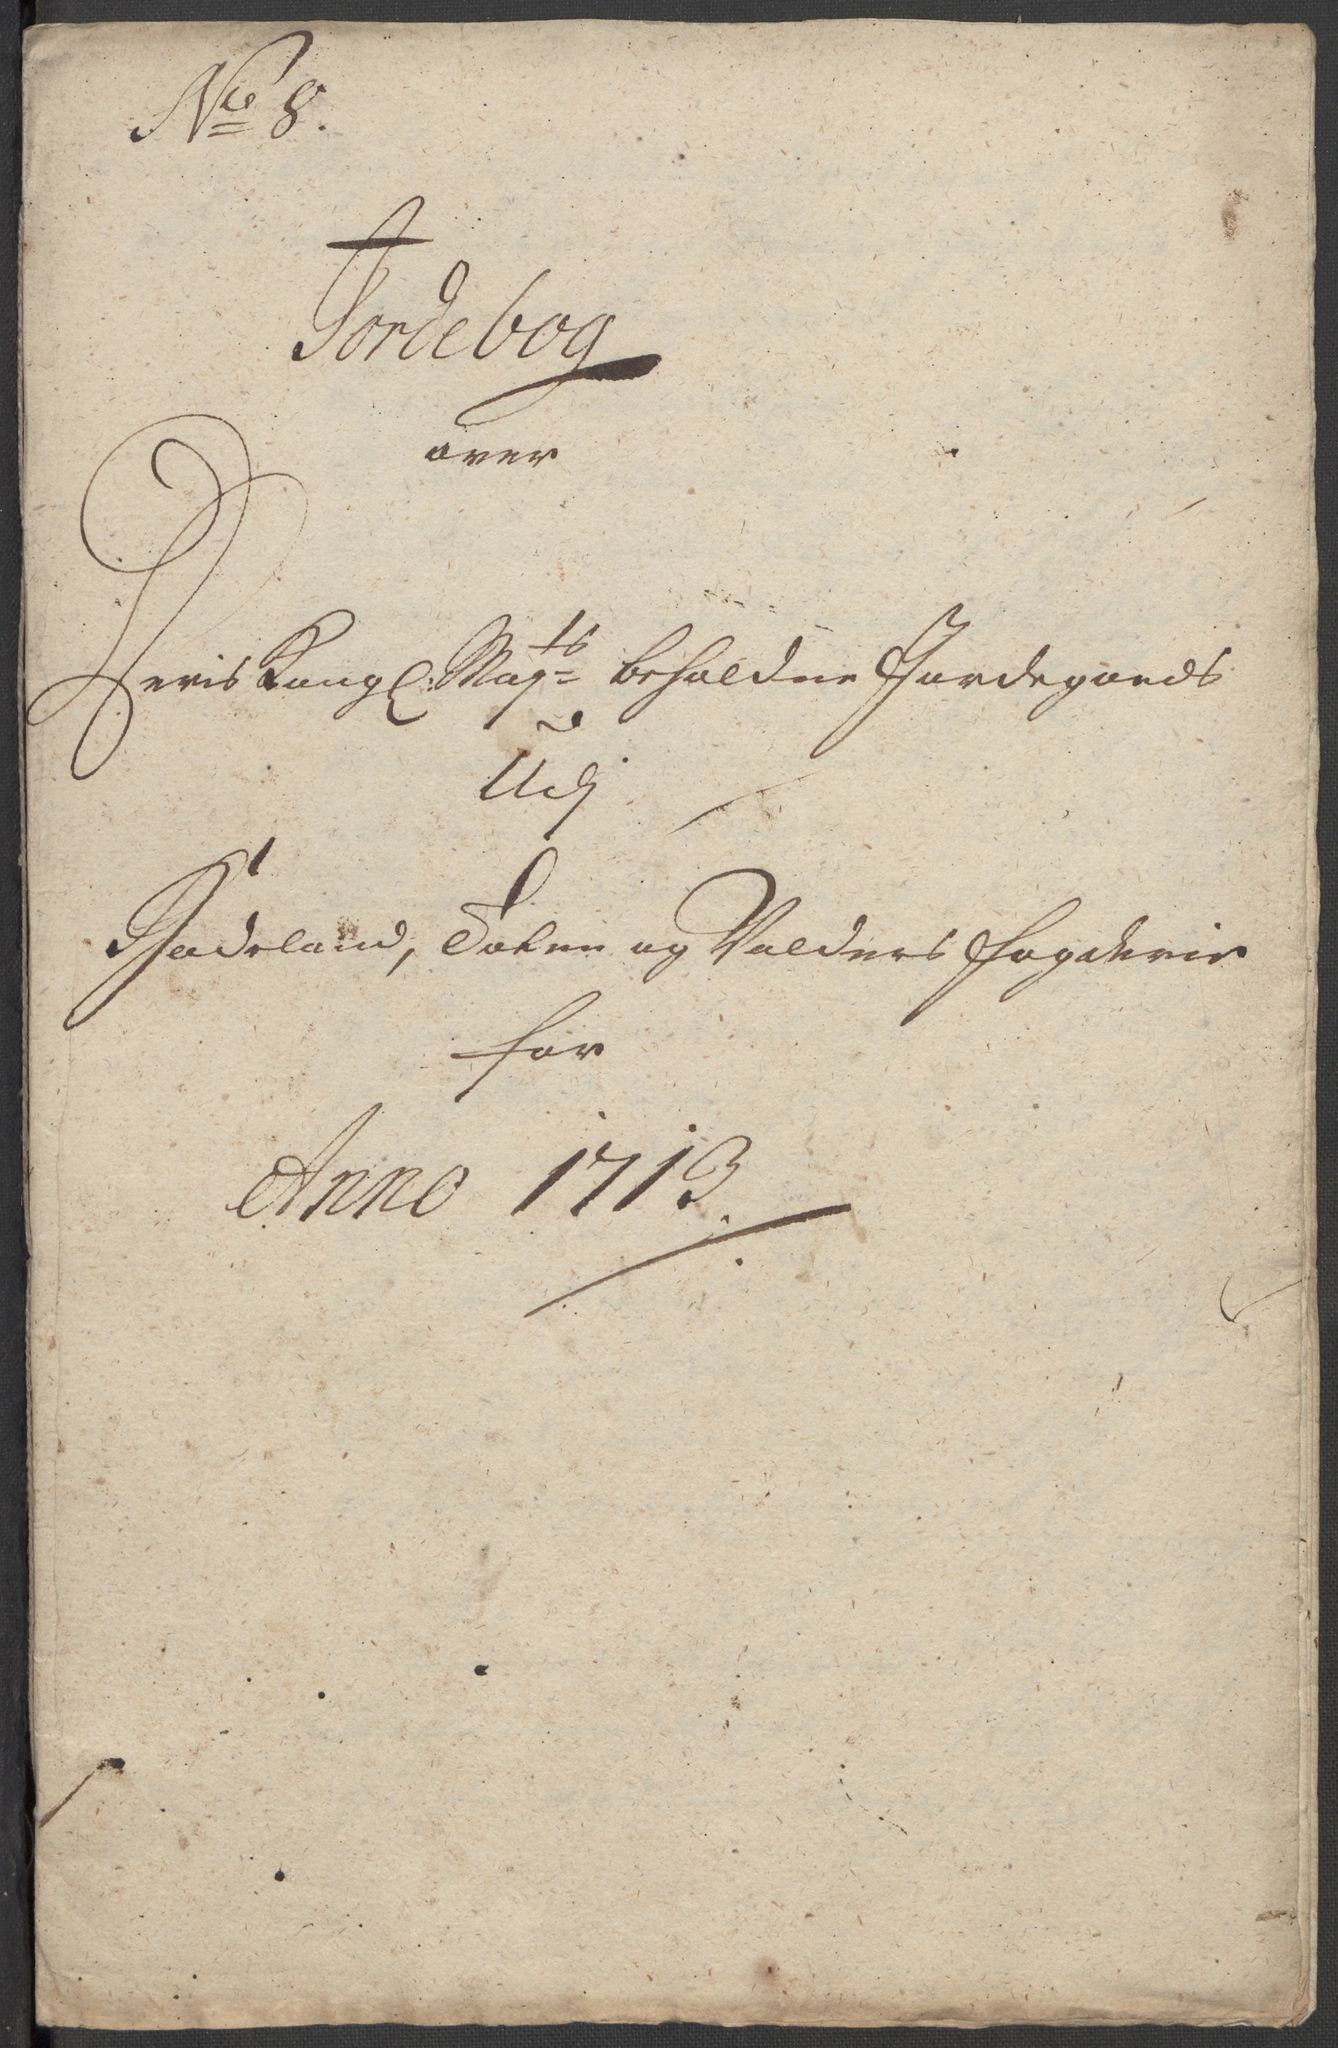 No 8.
Jordebog
over
Deris Kongl: Mayts beholdne Jordegoeds
Udj
Hadeland, Toten og Valders Fogderie
for
Anno 1713